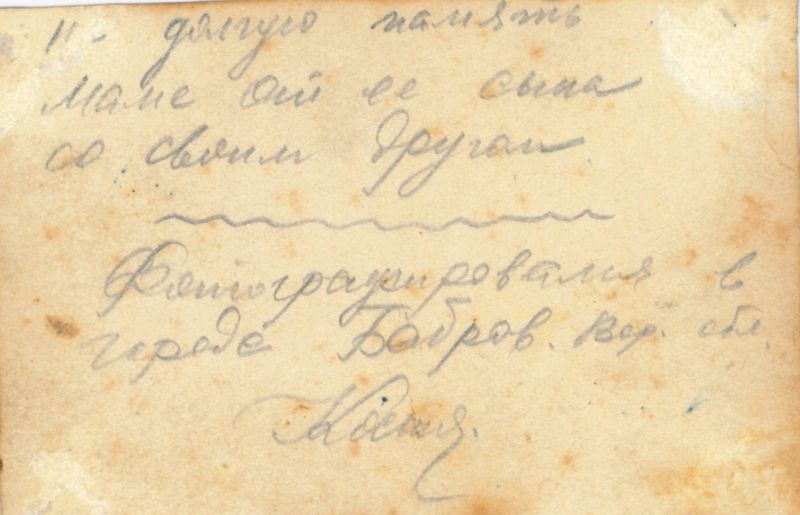 долгую память
маме от ее сына
со своим другом
Фотографировался в
городе Бобров. Вор. обл.
Костя.